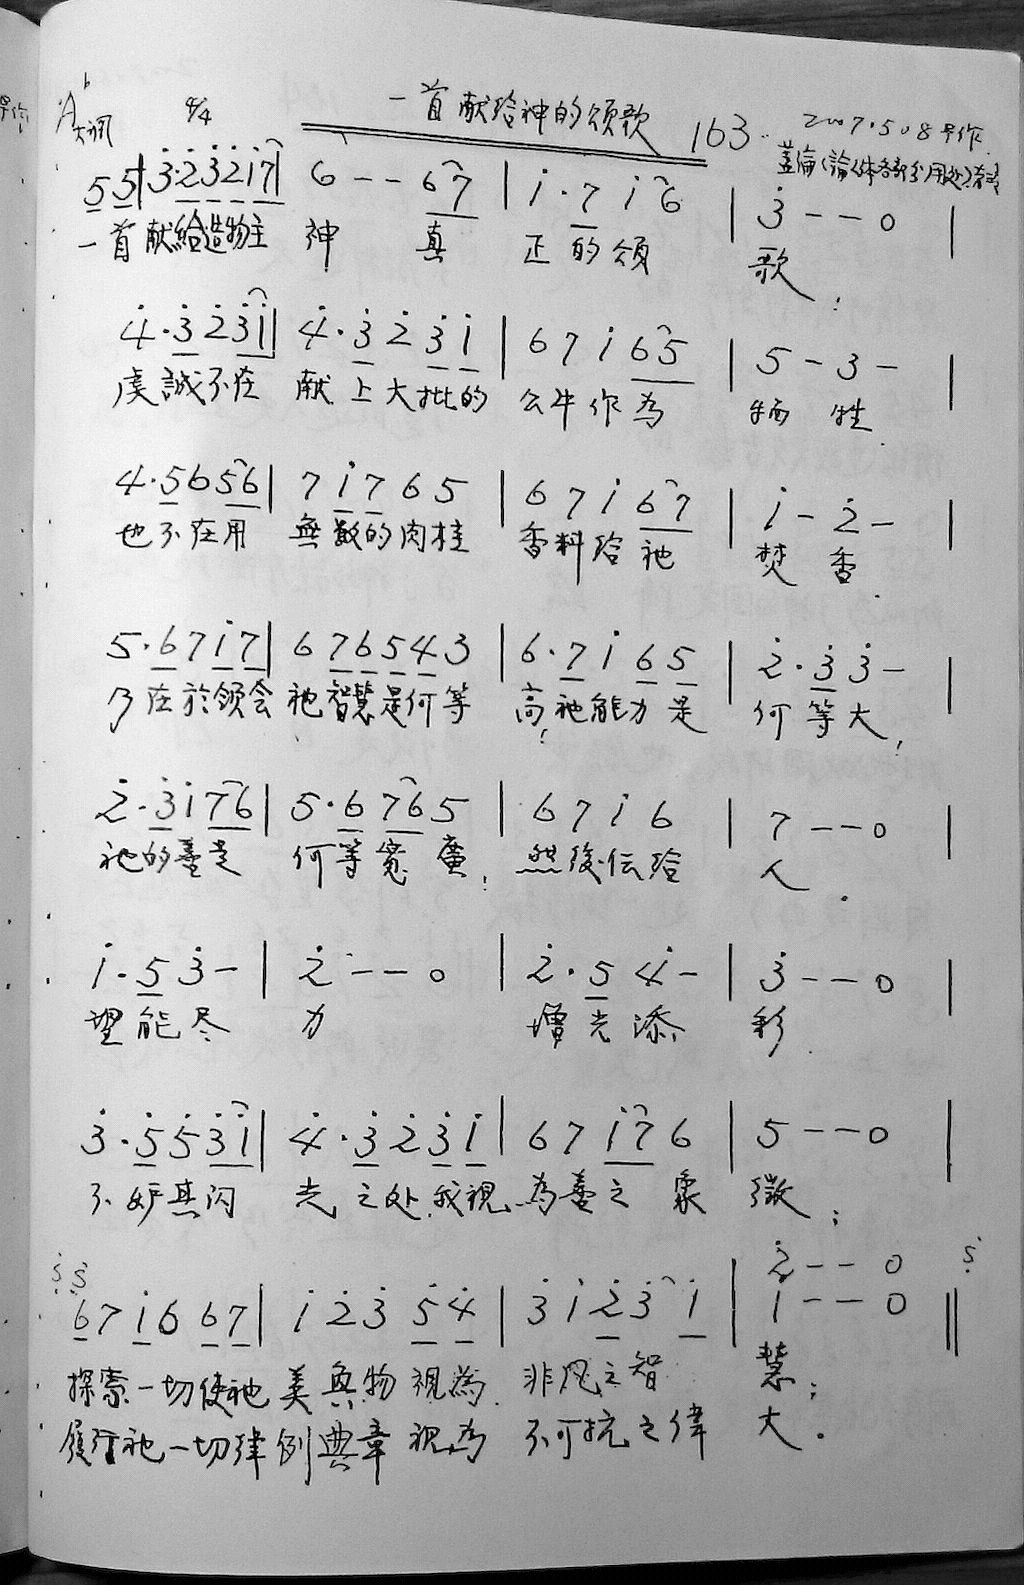 ᵇA大调 4/4 一首献给神的颂歌 163. 2007.5.08早作
盖倫《論人体各部分用处》
5 5|3·2 3 2 1 7| 6 - - 6 7 | 1·7 1 6 | 3 - - 0 |
一首献給造物主 神 真 正的頌 歌
4·3 2 3 1| 4·3 2 3 1 | 6 7 1 6 5 | 5 - 3 - |
虔誠不在 献上大批的 公牛作為 牺牲
4·5 6 5 6| 7 1 7 6 5 | 6 7 1 6 7 | 1 - 2 - |
也不在用 無数的肉桂 香料给祂 焚香
5·6 7 1 7| 6 7 6 5 4 3 | 6·7 1 6 5 | 2·3 3 - |
乃在於領会 祂智慧是何等 高!祂能力是 何等大!
2·3 1 7 6| 5·6 7 6 5 | 6 7 1 6 | 7 - - 0 |
祂的善是 何等宽 廣! 然後伝给 人.
1·5 3 - | 2 - - 0 | 2·5 4 - | 3 - - 0 |
望能尽 力 增光添 彩
3·5 5 3 1| 4·3 2 3 1 | 6 7 1 7 6 | 5 - - 0 |
不妒其闪 光之处,我視為善之 象 徵;
2 - - 0 S
S S
6 7 1 6 6 7| 1 2 3 5 4 | 3 1 2 3 1 | 1 - - 0 ‖
探索一切使祂美 與物視為 非凡之智 慧;
履行祂一切律例典章視為 不可抗之偉 大.